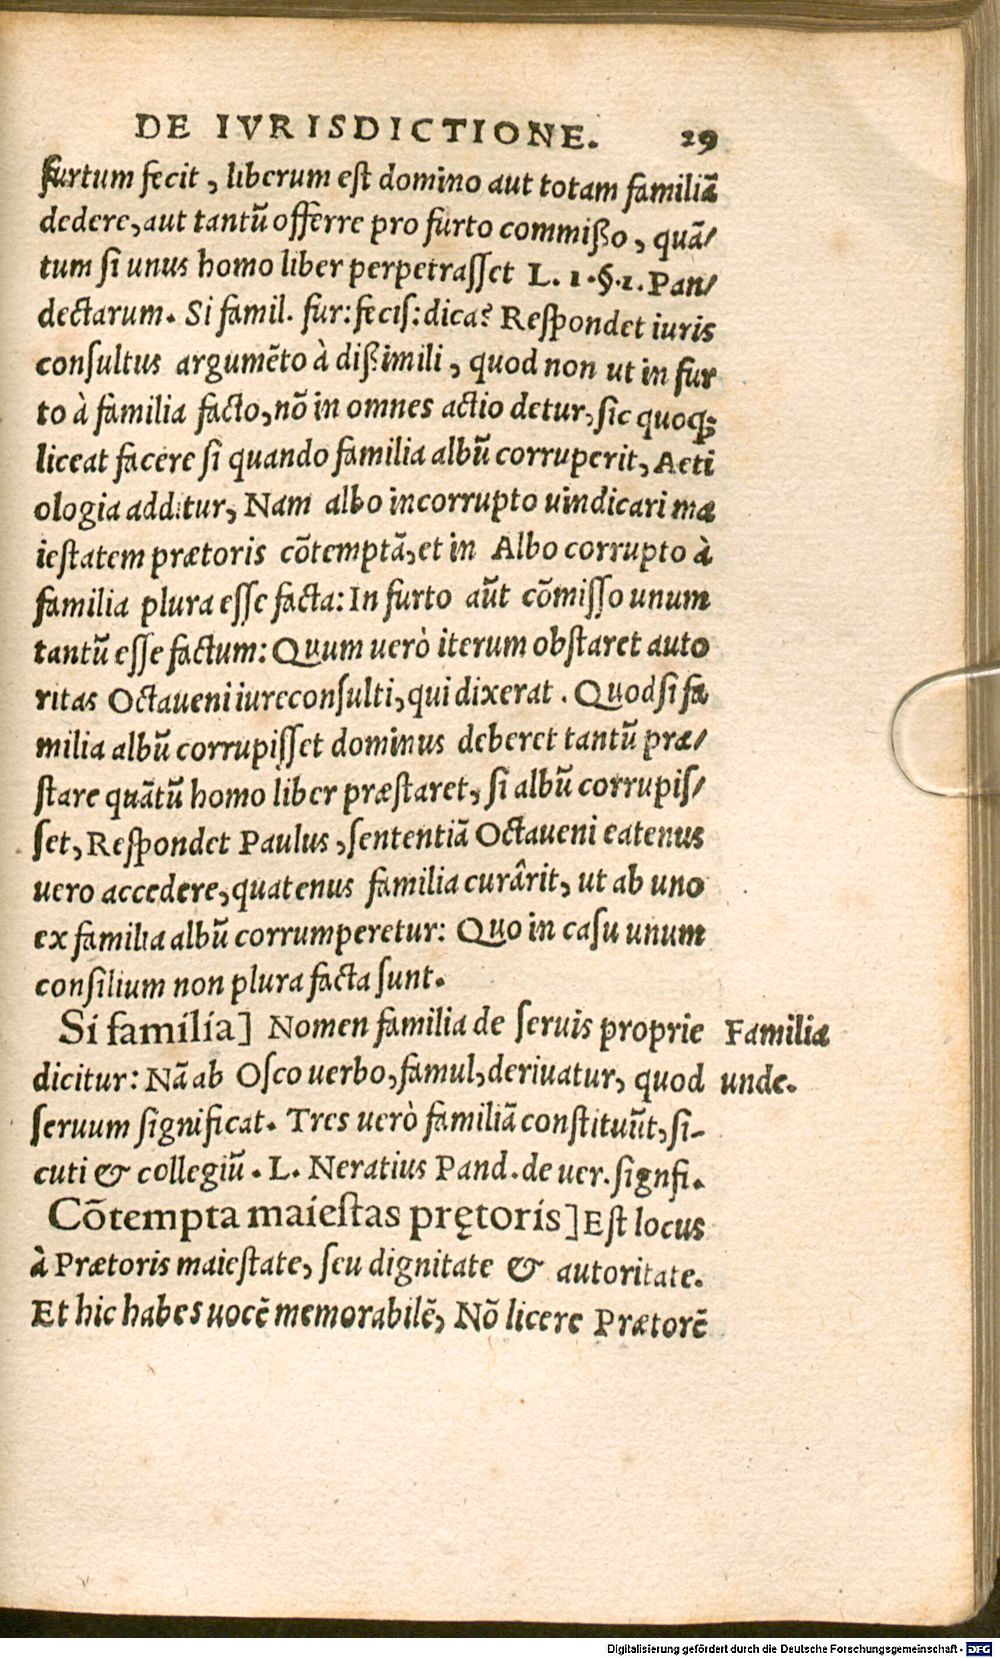 DE IVRISDICTIONE. 29
furtum fecit, liberum eſt domino aut totam familiā
dedere, aut tantū offerre pro furto commißo, quā/
tum ſi unus homo liber perpetraſſet L. 1. §. 1. Pan/
dectarum. Si famil. fur: feciſ: dica? Reſpondet iuris
conſultus argumēto à dißimili, quod non ut in fur
to à familia facto, nō in omnes actio detur, ſic quoq;
liceat facere ſi quando familia albū corruperit, Aeti
ologia additur, Nam albo incorrupto uindicari ma
ieſtatem prætoris cōtemptā, et in Albo corrupto à
familia plura eſſe facta: In furto aūt cōmiſſo unum
tantū eſſe factum: Quum uerò iterum obſtaret auto
ritas Octaueni iureconſulti, qui dixerat. Quod ſi fa
milia albū corrupiſſet dominus deberet tantū præ/
ſtare quātū homo liber præſtaret, ſi albū corrupiſ/
ſet, Reſpondet Paulus, ſententiā Octaueni eatenus
uero accedere, quatenus familia curârit, ut ab uno
ex familia albū corrumperetur: Quo in caſu unum
conſilium non plura facta ſunt.
Si familia] Nomen familia de ſeruis proprie
Familia
dicitur: Nā ab Oſco uerbo, famul, deriuatur, quod
unde.
ſeruum ſignificat. Tres uerò familiā conſtituūt, ſi-
cuti & collegiū. L. Neratius Pand. de uer. ſignfi.
Cōtempta maieſtas prętoris] Eſt locus
à Prætoris maieſtate, ſeu dignitate & autoritate.
Et hic habes uocē memorabilē, Nō licere Prætorē
Digitalisierung gefördert durch die Deutsche Forschungsgemeinschaft - DFG